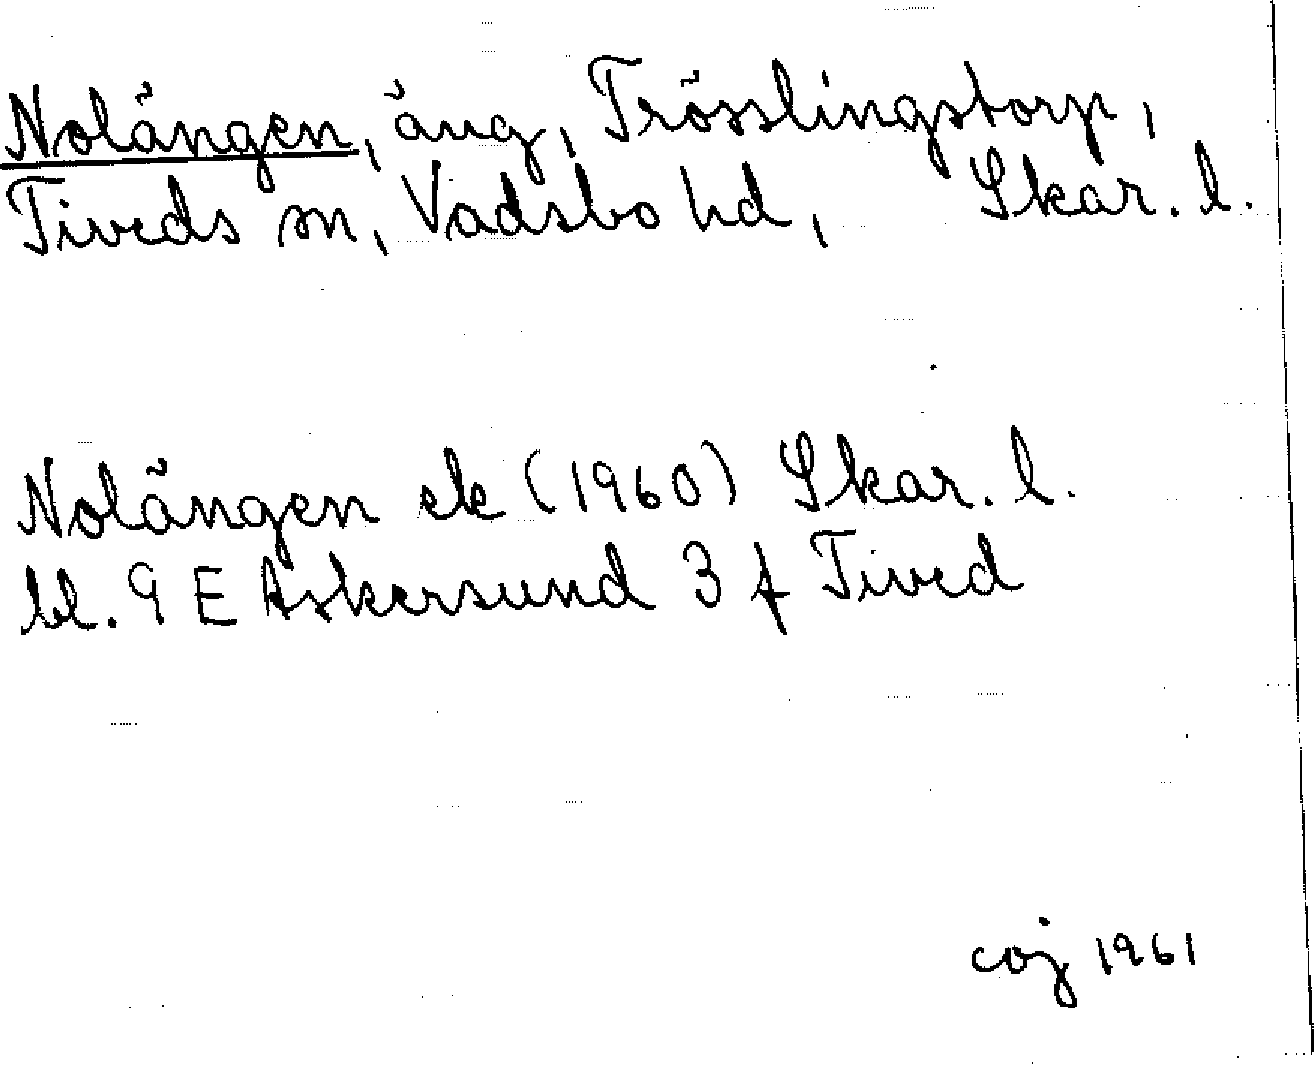 Nolängen, äng, Trösslingstorp,
Tiveds sn, Vadsbo hd, Skar. l.
Nolängen ek (1960) Skar. l.
bl. 9 E Askersund 3 f Tived
coj 1961